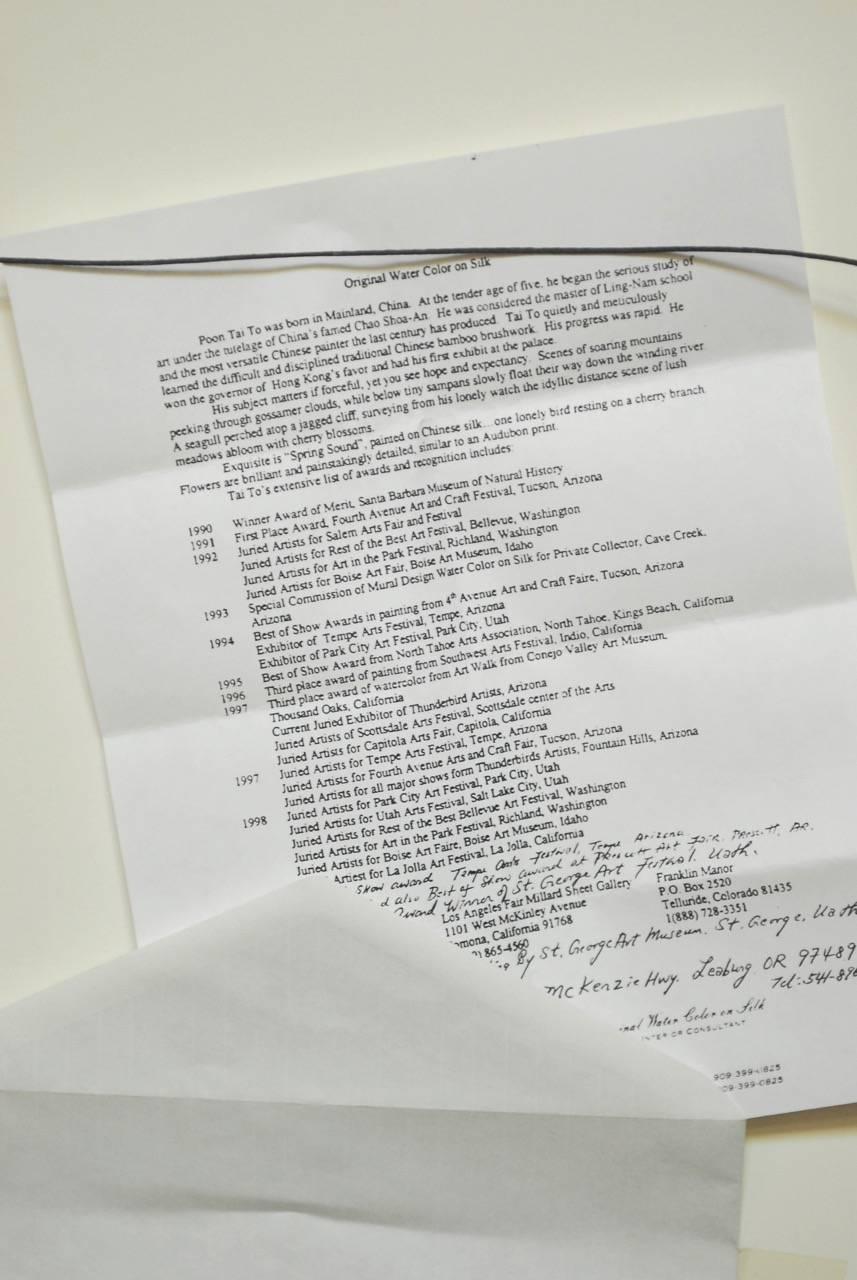 Original Water Color on Silk
Poon Tai To was born in Mainland, China. At the tender age of five, he began the serious study of
art under the tutelage of China's famed Chao Shoa-An. He was considered the master of Ling-Nam school
and the most versatile Chinese painter the last century has produced. Tai To quietly and meticulously
learned the difficult and disciplined traditional Chinese bamboo brushwork. His progress was rapid. He
won the governor of Hong Kong's favor and had his first exhibit at the palace.
His subject matters if forceful, yet you see hope and expectancy. Scenes of soaring mountains
peeking through gossamer clouds, while below tiny sampans slowly float their way down the winding river.
A seagull perched atop a jagged cliff, surveying from his lonely watch the idyllic distance scene of lush
meadows abloom with cherry blossoms.
Exquisite is "Spring Sound", painted on Chinese silk...one lonely bird resting on a cherry branch.
Flowers are brilliant and painstakingly detailed, similar to an Audubon print.
Tai To's extensive list of awards and recognition includes:
1990 Winner Award of Merit, Santa Barbara Museum of Natural History
1991 First Place Award, Fourth Avenue Art and Craft Festival, Tucson, Arizona
1992 Juried Artists for Salem Arts Fair and Festival
Juried Artists for Rest of the Best Art Festival, Bellevue, Washington
Juried Artists for Art in the Park Festival, Richland, Washington
Juried Artists for Boise Art Fair, Boise Art Museum, Idaho
1993 Special Commission of Mural Design Water Color on Silk for Private Collector, Cave Creek,
Arizona
1994 Best of Show Awards in painting from 4th Avenue Art and Craft Faire, Tucson, Arizona
Exhibitor of Tempe Arts Festival, Tempe, Arizona
Exhibitor of Park City Art Festival, Park City, Utah
1995 Best of Show Award from North Tahoe Arts Association, North Tahoe, Kings Beach, California
1996 Third place award of painting from Southwest Arts Festival, Indio, California
1997 Third place award of watercolor from Art Walk from Conejo Valley Art Museum,
Thousand Oaks, California
Current Juried Exhibitor of Thunderbird Artists, Arizona
Juried Artists of Scottsdale Arts Festival, Scottsdale center of the Arts
Juried Artists for Capitola Arts Fair, Capitola, California
1997 Juried Artists for Tempe Arts Festival, Tempe, Arizona
Juried Artists for Fourth Avenue Arts and Craft Fair, Tucson, Arizona
Juried Artists for all major shows form Thunderbirds Artists, Fountain Hills, Arizona
1998 Juried Artists for Park City Art Festival, Park City, Utah
Juried Artists for Utah Arts Festival, Salt Lake City, Utah
Juried Artists for Rest of the Best Bellevue Art Festival, Washington
Juried Artists for Art in the Park Festival, Richland, Washington
Juried Artists for Boise Art Faire, Boise Art Museum, Idaho
Artiest for La Jolla Art Festival, La Jolla, California
Show award Tempe Arts Festival, Tempe Arizona
also Best of Show award at Prescott Art Fair, Prescott, AR.
award Winner of St. George Art Festival. Utah.
Los Angeles Fair Millard Sheet Gallery
1101 West McKinley Avenue
California 91768
865-4560
Franklin Manor
P.O. Box 2520
Telluride, Colorado 81435
1(888) 728-3351
By St. George Art Museum. St. George, Utah
McKenzie Hwy. Leaburg OR 97489
Tel: 541-896
Water Color on Silk
INTERIOR CONSULTANT
909-399-0825
09-399-0825